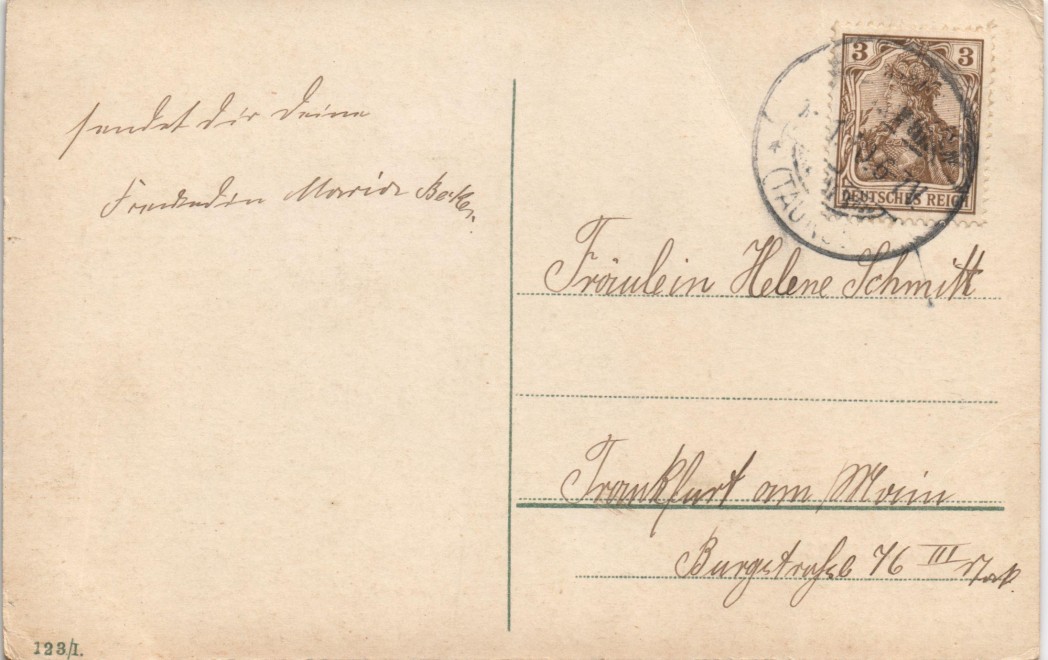 sendet dir deine
Freundin Maria
3 3
DEUTSCHES REICH
(TAUNUS
Fräulein Helene Schmitt
Frankfurt am Main
Burgstraße 76 III
123/I.